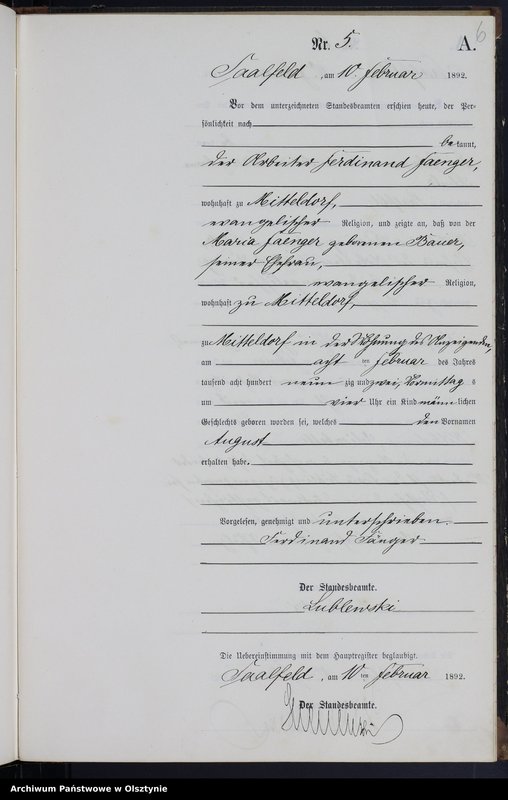 6
Nr. 5. A.
Saalfeld, am 10. Februar 1892.
Vor dem unterzeichneten Standesbeamten erschien heute, der Per-
sönlichkeit nach
bekannt,
der Arbeiter Ferdinand Jaenger,
wohnhaft zu Mitteldorf,
evangelischer Religion, und zeigte an, daß von der
Maria Jaenger geborenen Bauer,
seiner Ehefrau,
evangelischer Religion,
wohnhaft zu Mitteldorf,
zu Mitteldorf in der Wohnung des Anzeigenden,
am acht ten Februar des Jahres
tausend acht hundert neun zig und zwei, Vormittag s
um vier Uhr ein Kind männlichen
Geschlechts geboren worden sei, welches den Vornamen
August
erhalten habe.
Vorgelesen, genehmigt und unterschrieben.
Ferdinand Jänger
Der Standesbeamte.
Lublewski
Die Uebereinstimmung mit dem Hauptregister beglaubigt.
Saalfeld, am 10 ten Februar 1892.
Der Standesbeamte.
Archiwum Państwowe w Olsztynie